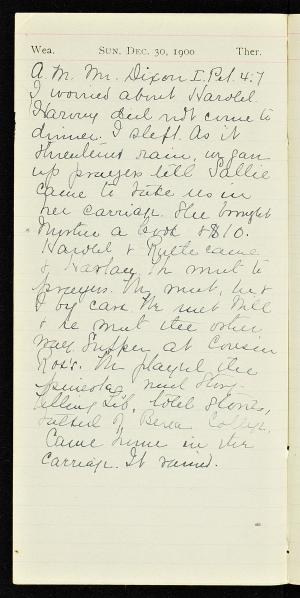 Wea. SUN. DEC. 30, 1900 Ther.
A. M. Mr. Dixon I. Pet. 4:7
I worried about Harold.
Harvey did not come to
dinner. I slept. As it
threatened rain, we gave
up prayers till Sallie
came to take us in
her carriage. She brought
a book & $10.
Harold & Ruth came
& Harlan. We went to
prayers. They went, he &
I by cars. We met Will
& he went the other
way. Supper at Cousin
Rose's. We played the
and story-
telling Lib. told stories,
talked of Berea College.
Came home in the
carriage. It rained.